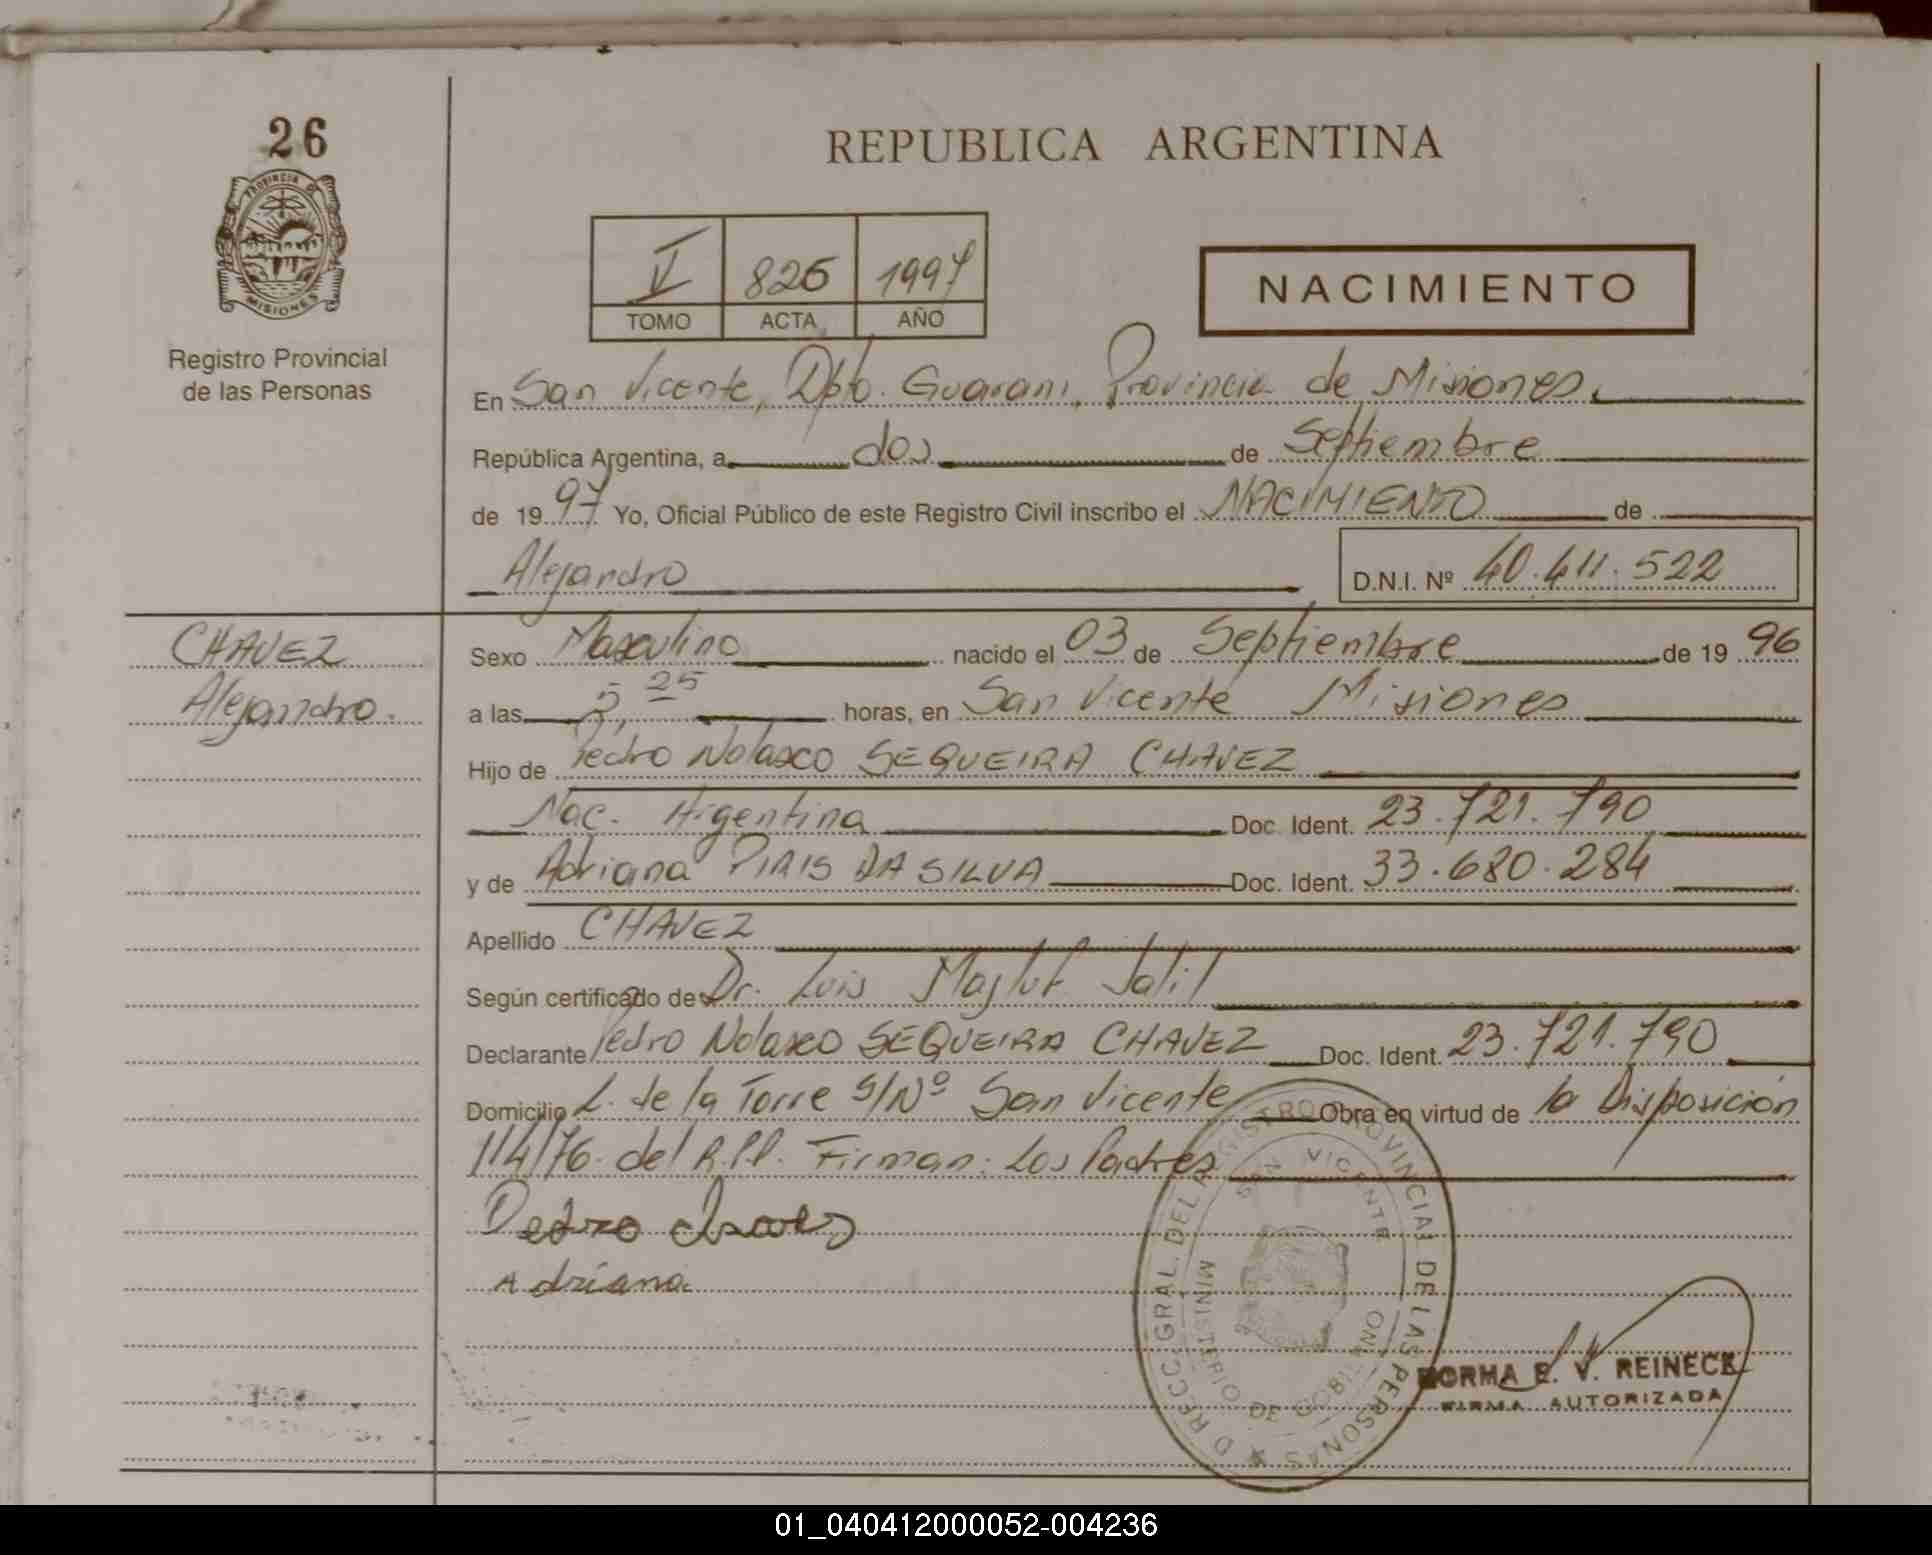 26
PROVINCIA DE
MISIONES
Registro Provincial
de las Personas
REPUBLICA ARGENTINA
V 826 1997
TOMO ACTA AÑO
NACIMIENTO
En San Vicente, Dpto. Guarani, Provincia de Misiones.
República Argentina, a dos de Septiembre
de 1997 Yo, Oficial Público de este Registro Civil inscribo el NACIMIENTO de
Alejandro
D.N.I. Nº 40.411.522
CHAVEZ
Alejandro.
Sexo Masculino nacido el 03 de Septiembre de 1996
a las 5,25 horas, en San Vicente Misiones
Hijo de Pedro Nolasco SEQUEIRA CHAVEZ
Nac. Argentina Doc. Ident. 23.721.790
y de Adriana PIRIS DA SILVA Doc. Ident. 33.680.284
Apellido CHAVEZ
Según certificado de Dr. Luis Masluf Jalil
Declarante Pedro Nolasco SEQUEIRA CHAVEZ Doc. Ident. 23.721.790
Domicilio L. de la Torre S/Nº San Vicente Obra en virtud de la Disposición
114/76 del R.P.P. Firman: Los Padres
Pedro
Adriana
DIRECC. GRAL. DEL REGISTRO PROVINCIAL DE LAS PERSONAS
SAN VICENTE
MINISTERIO DE GOBIERNO
NORMA E. V. REINECK
FIRMA AUTORIZADA
01_040412000052-004236